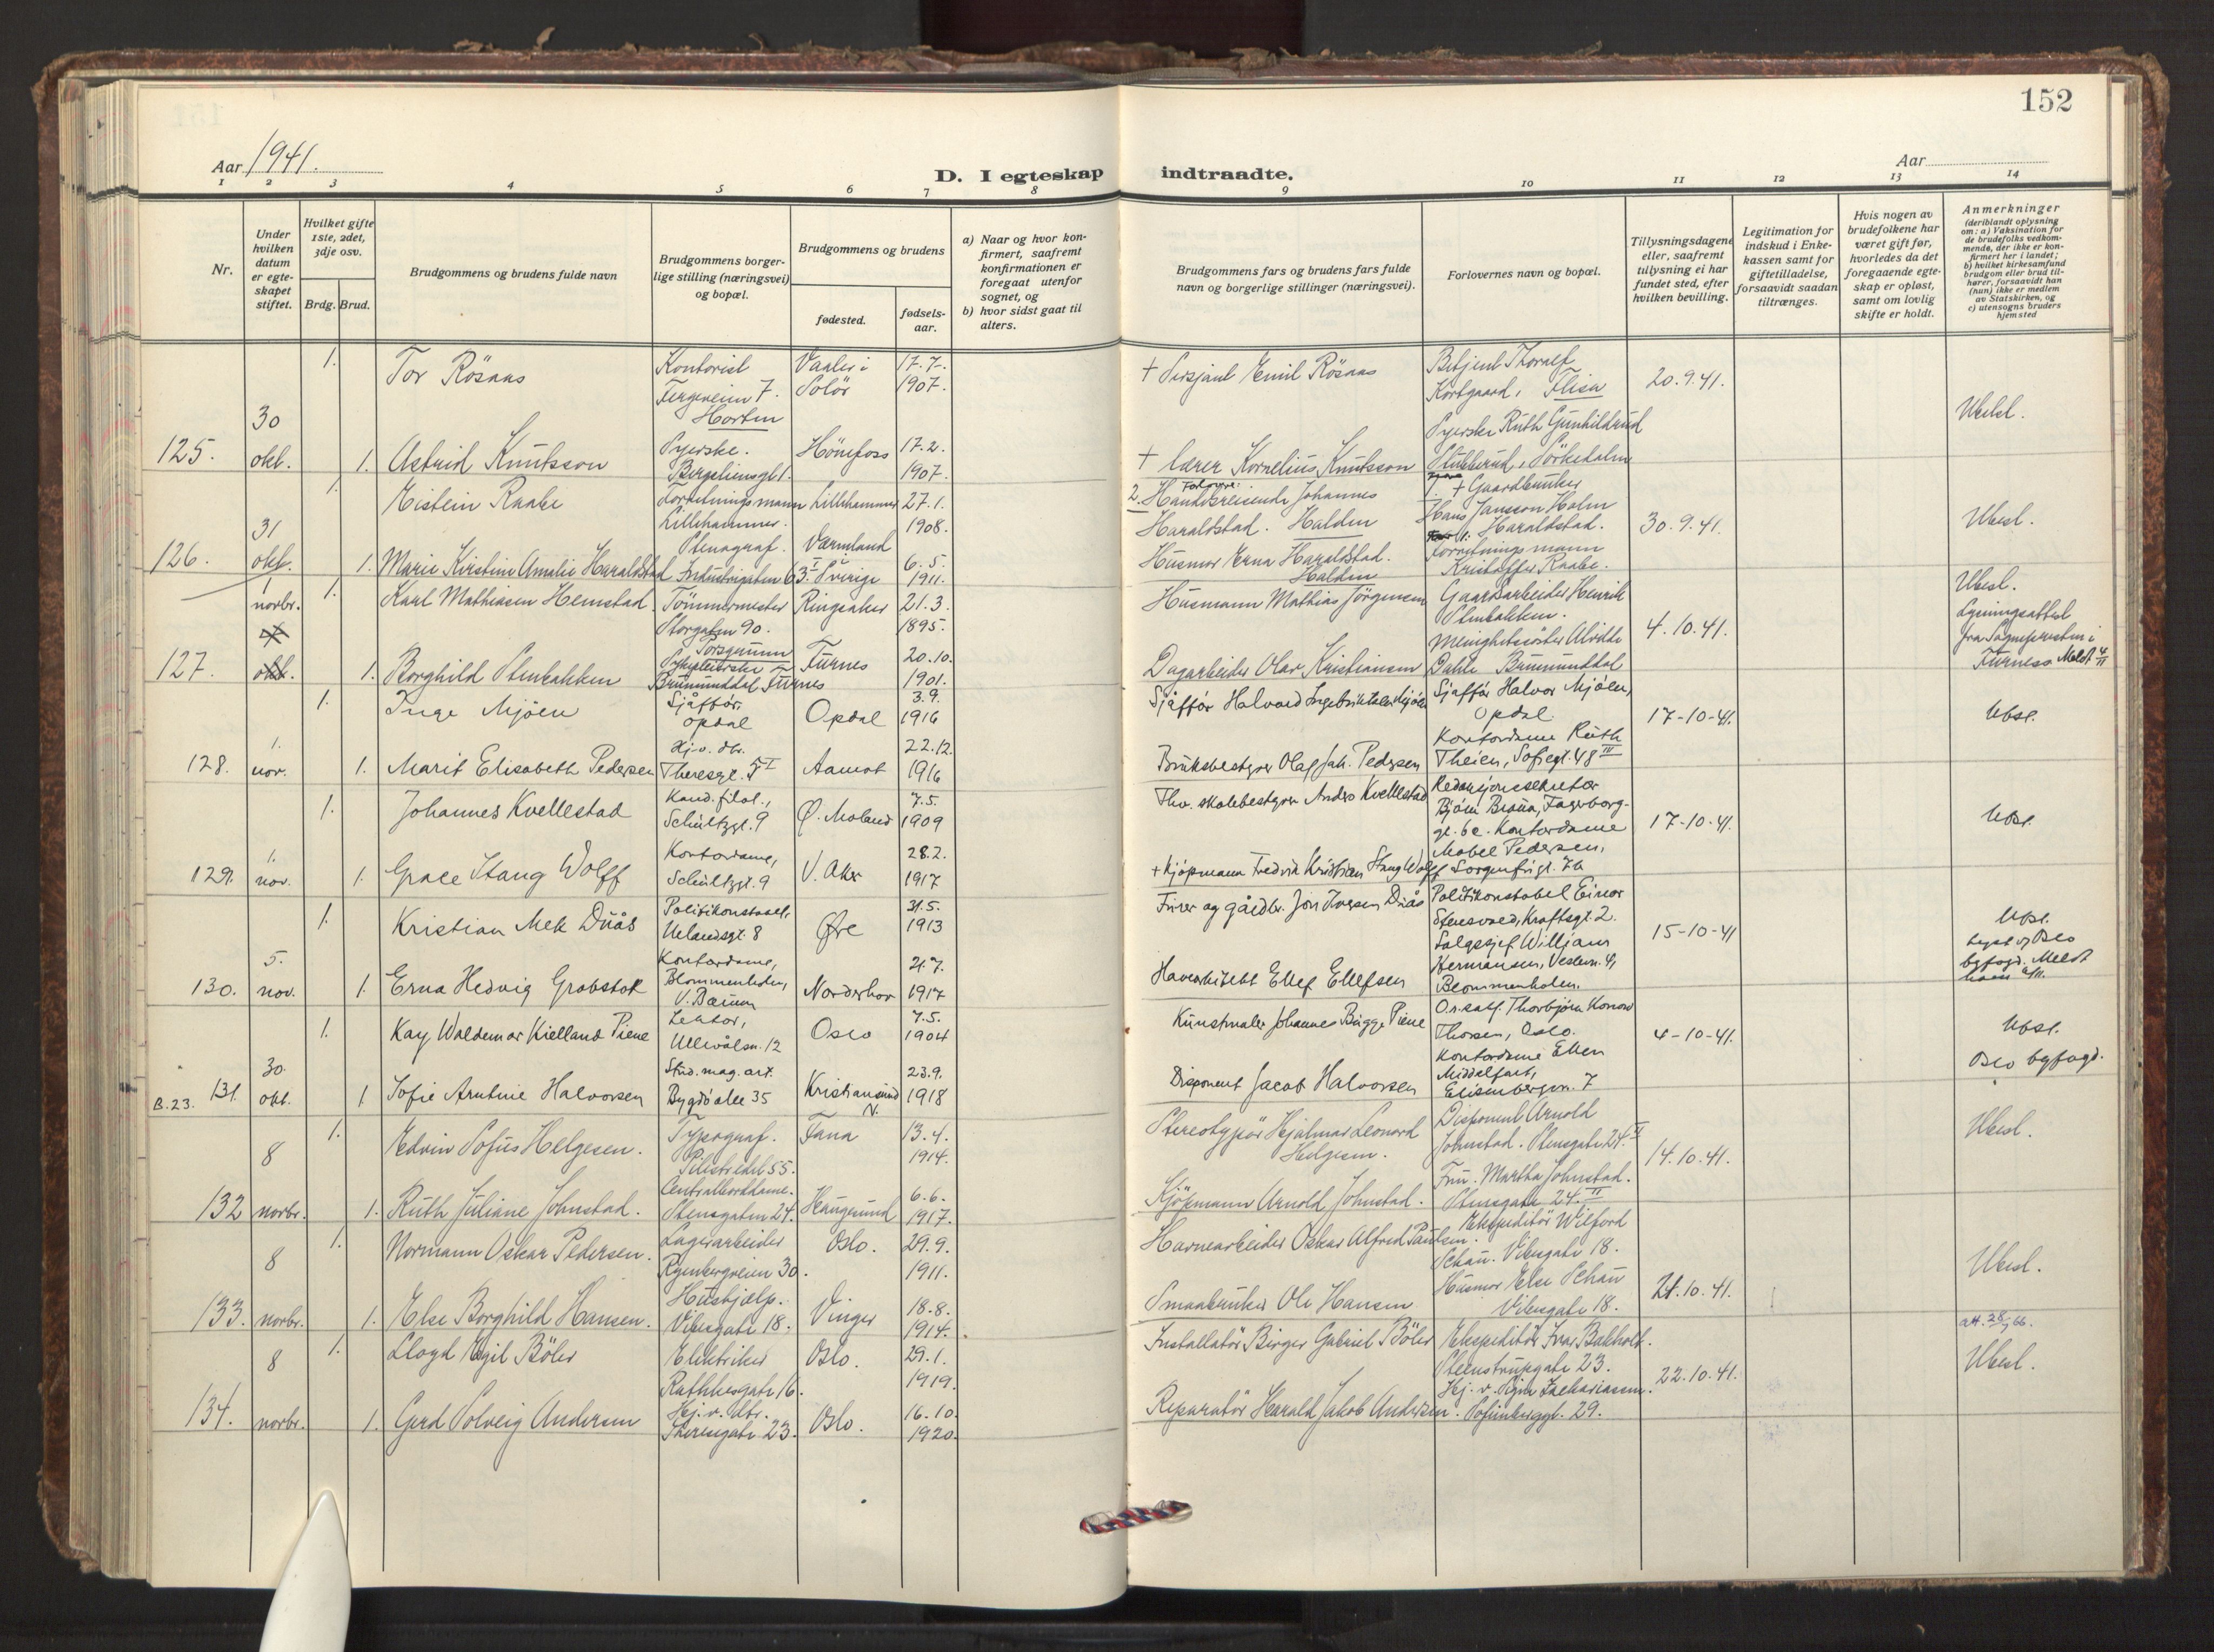 152
Aar 1941.
D. I egteskap indtraadte.
Aar
1 2 3 4 5 6 7 8 9 10 11 12 13 14
Nr.
Under hvilken datum er egteskapet stiftet.
Hvilket gifte 1ste, 2det, 3dje osv.
Brdg. Brud.
Brudgommens og brudens fulde navn
Brudgommens borgerlige stilling (næringsvei) og bopæl.
Brudgommens og brudens
fødested.
fødselsaar.
a) Naar og hvor konfirmert, saafremt konfirmationen er foregaat utenfor sognet, og
b) hvor sidst gaat til alters.
Brudgommens fars og brudens fars fulde navn og borgerlige stillinger (næringsvei).
Forlovernes navn og bopæl.
Tillysningsdagene eller, saafremt tillysning ei har fundet sted, efter hvilken bevilling.
Legitimation for indskud i Enkekassen samt for giftetilladelse, forsaavidt saadan tiltrænges.
Hvis nogen av brudefolkene har været gift før, hvorledes da det foregaaende egteskap er opløst, samt om lovlig skifte er holdt.
Anmerkninger
(deriblandt oplysning om: a) Vaksination for de brudefolks vedkommende, der ikke er konfirmert her i landet; b) hvilket kirkesamfund brudgom eller brud tilhører, forsaavidt han (hun) ikke er medlem av Statskirken, og c) utensogns bruders hjemsted
125. 30 okt.
1. Tor Rösaas
Kontorist
7.
Horten
Vaaler i Solör
17.7. 1907.
+ Sersjant Emil Rösaas
Betjent Thoralf
Flisa
20.9.41.
Ubesl.
1. Astrid Knutsson
Syerske.
Hönefoss
17.2. 1907.
+ lærer Kornelius Knutsson
Syerske Ruth Gunhildrud
Sörkedalen
126. 31 okt.
1. Eistein Raabe
Forretningsmann
Lillehammer.
Lillehammer
27.1. 1908.
2. Forlovere:
Handelsreisende Johannes
Haraldstad. Halden
1. + Gaardbruker
Hans Jansson Holm
30.9.41.
Ubesl.
1. Marie Kirstine Amalie Haraldstad
Stenograf.
Industrigaten 63 I
Værmland
Sverige
6.5. 1911.
Husmor Erna Haraldstad.
Halden
Haraldstad.
Forretningsmann
Kristoffer Raabe.
127. 1 novbr.
okt.
1. Karl Mathiasen Hemstad
Tömmermester
Storgaten 90.
Porsgrunn
Ringsaker
21.3. 1895.
Husmann Mathias Jörgensen
Gaardsarbeider Henrik
Stenbakken.
4.10.41.
Ubesl.
Lysningsattest
fra Sognepresten i
Furnes Meldt 4/11
1. Borghild Stenbakken
Sykepleierske
Brumunddal Furnes
Furnes
20.10. 1901.
Dagarbeider Olav Kristiansen
Menighetssöster Alvilde
Dahle Brumunddal
128. 1. nov.
1. Inge Mjöen
Sjåför,
Opdal
Opdal
3.9. 1916
Sjåför Halvard Ingebriktsen Mjöen
Sjåför Halvor Mjöen,
Opdal
17-10-41.
Ubsl.
1. Marit Elisabeth Pedersen
Hj.v. dtr.
Theresgt. 5 II
Aamot
22.12. 1916
Bruksbestyrer Olaf Joh. Pedersen
Kontordame Ruth
Theien, Sofiegt. 48 III
129. 1. nov.
1. Johannes Kvellestad
Kand. filol.,
Schultzgt. 9
Ø. Moland
7.5. 1909
Fhv. skolebestyrer Anders Kvellestad
Redaksjonssekretær
Bjørn Bruna, Fagerborg-
gt. 6 c. Kontordame
17-10-41.
Ubsl.
1. Grace Stang Wolff
Kontordame,
Schultzgt. 9
V. Aker
28.2. 1917
+ Kjøpmann Fredrik Kristian Stang Wolff
Mabel Pedersen,
Sorgenfrigt. 7b
130. 5. nov.
1. Kristian Mek Duås
Politikonstabel,
Uelandsgt. 8
Øre
31.5. 1913
Fører og gårdbr. Jon Iversen Duås
Politikonstabel Einar
Stensvoed, Kraftsgt. 2.
15-10-41
Ubsl.
Oslo
byfogd. Meldt
1. Erna Hedvig Grobstok
Kontordame,
Blommenholm,
V. Bærum
Norderhov
21.7. 1917
Havearkitekt Ellef Ellefsen
Salgssjef Willjam
Hermansen, Vestern. 4,
Blommenholm.
B.23. 131. 30. okt.
1. Kay Waldemar Kielland Piene
Lektor,
Ullevålsv. 12
Oslo
7.5. 1904
Kunstmaler Johannes Bugge Piene
O.r.satf. Thorbjørn Konow
Thorsen, Oslo.
4-10-41.
Ubsl.
Oslo byfogd.
1 Sofie Arntine Halvorsen
Stud. mag. art.
Bygdö alle 35
Kristiansund N.
23.9. 1918
Disponent Jacob Halvorsen
Kontordame Ellen
Middelfart,
Elisenbergvn. 7
132 8 novbr.
1. Edvin Sofus Helgesen.
Typograf.
Pilestredet 55.
Tana
13.4. 1914.
Stereotypör Hjalmar Leonard
Helgesen.
Disponent Arnold
Johnstad. Stensgate 24 II
14.10.41.
Ubesl.
1. Ruth Juliane Johnstad.
Centralborddame.
Stensgaten 24.
Haugesund
6.6. 1917.
Kjöpmann Arnold Johnstad.
Fru. Martha Johnstad.
Stensgate 24. II
133. 8 novbr.
1. Normann Oskar Pedersen.
Lagerarbeider
Ryenbergveien 30.
Oslo.
29.9. 1911.
Havnearbeider Oskar Alfred Paulsen.
Ekspeditör Wilford
Schau. Vibesgate 18.
21.10.41.
Ubesl.
1. Else Borghild Hansen.
Hushjælp.
Vibesgate 18.
Vinger
18.8. 1914.
Smaabruker Ole Hansen
Husmor Else Schau
Vibesgate 18.
134. 8 novbr.
1. Lloyd Egil Böler
Elektriker
Rathkesgate 16.
Oslo.
29.1. 1919.
Installatör Birger Gabriel Böler
Ekspeditör Ivar Bakholt.
Steenstrupgate 23.
22.10.41.
Ubesl.
1. Gerd Solveig Andersen
Hj. v. dtr.
Theresgate 23.
Oslo.
16.10. 1920.
Reparatör Harald Jakob Andersen.
Hj. v. Signe Zachariassen.
Sofienberggt. 29.